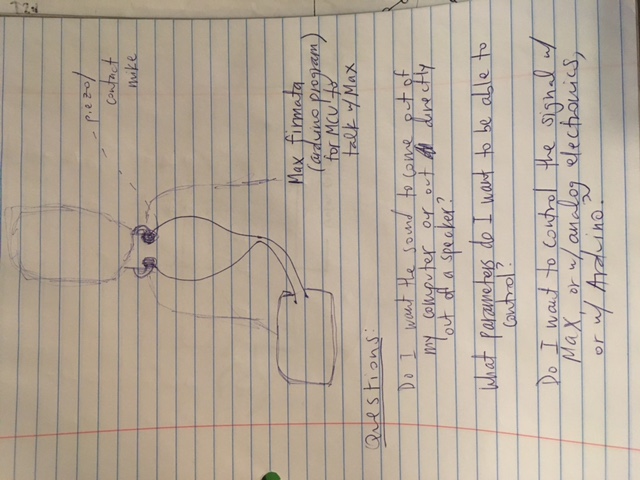 piezo/
contact
mike
Max firmata
(arduino program)
for MCU to
talk w/ Max
Questions:
Do I want the sound to come out of
my computer or out directly
out of a speaker?
What parameters do I want to be able to
control?
Do I want to control the signal w/
Max, or w/ analog electronics,
or w/ Arduino?